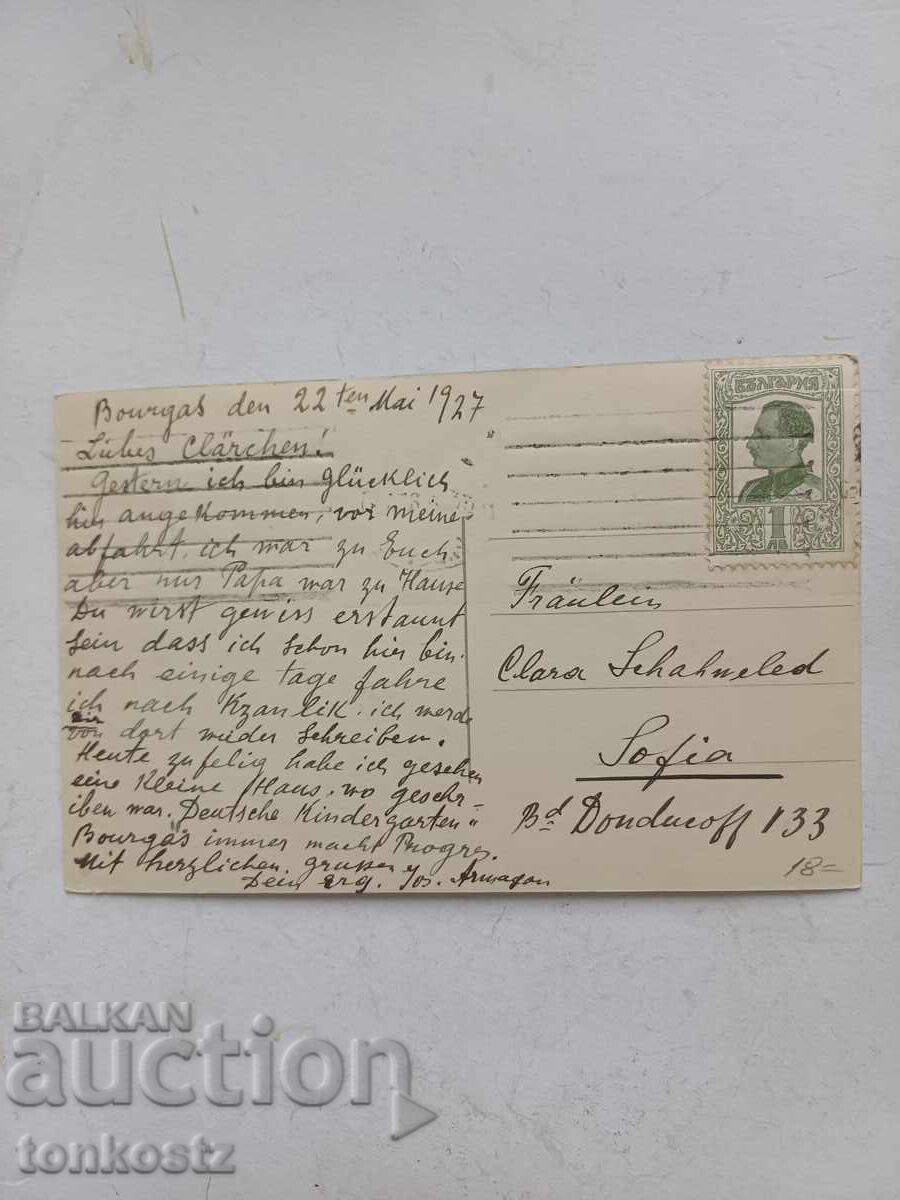 Bourgas den 22ten Mai 1927
Liebes Clärchen!
Gestern ich bin glücklich
hier angekommen, vor meine
abfahrt, ich war zu Euch
aber nur Papa war zu Hause
Du wirst gewiss erstaunt
sein dass ich schon hier bin.
nach einige tage fahre
ich nach Kzanlik. ich werde
dir von dort wieder schreiben.
Heute zufelig habe ich gesehen
eine Kleine Haus, wo geschr-
iben war. Deutsche Kindergarten"
Bourgas immer macht Progres.
Mit herzlichen grussen
Dein erg. Jos.
БЪЛГАРИЯ
1
ЛВ
Fräulein
Clara
Sofia
Bd Donducoff 133
18-
BALKAN
auction
tonkostz